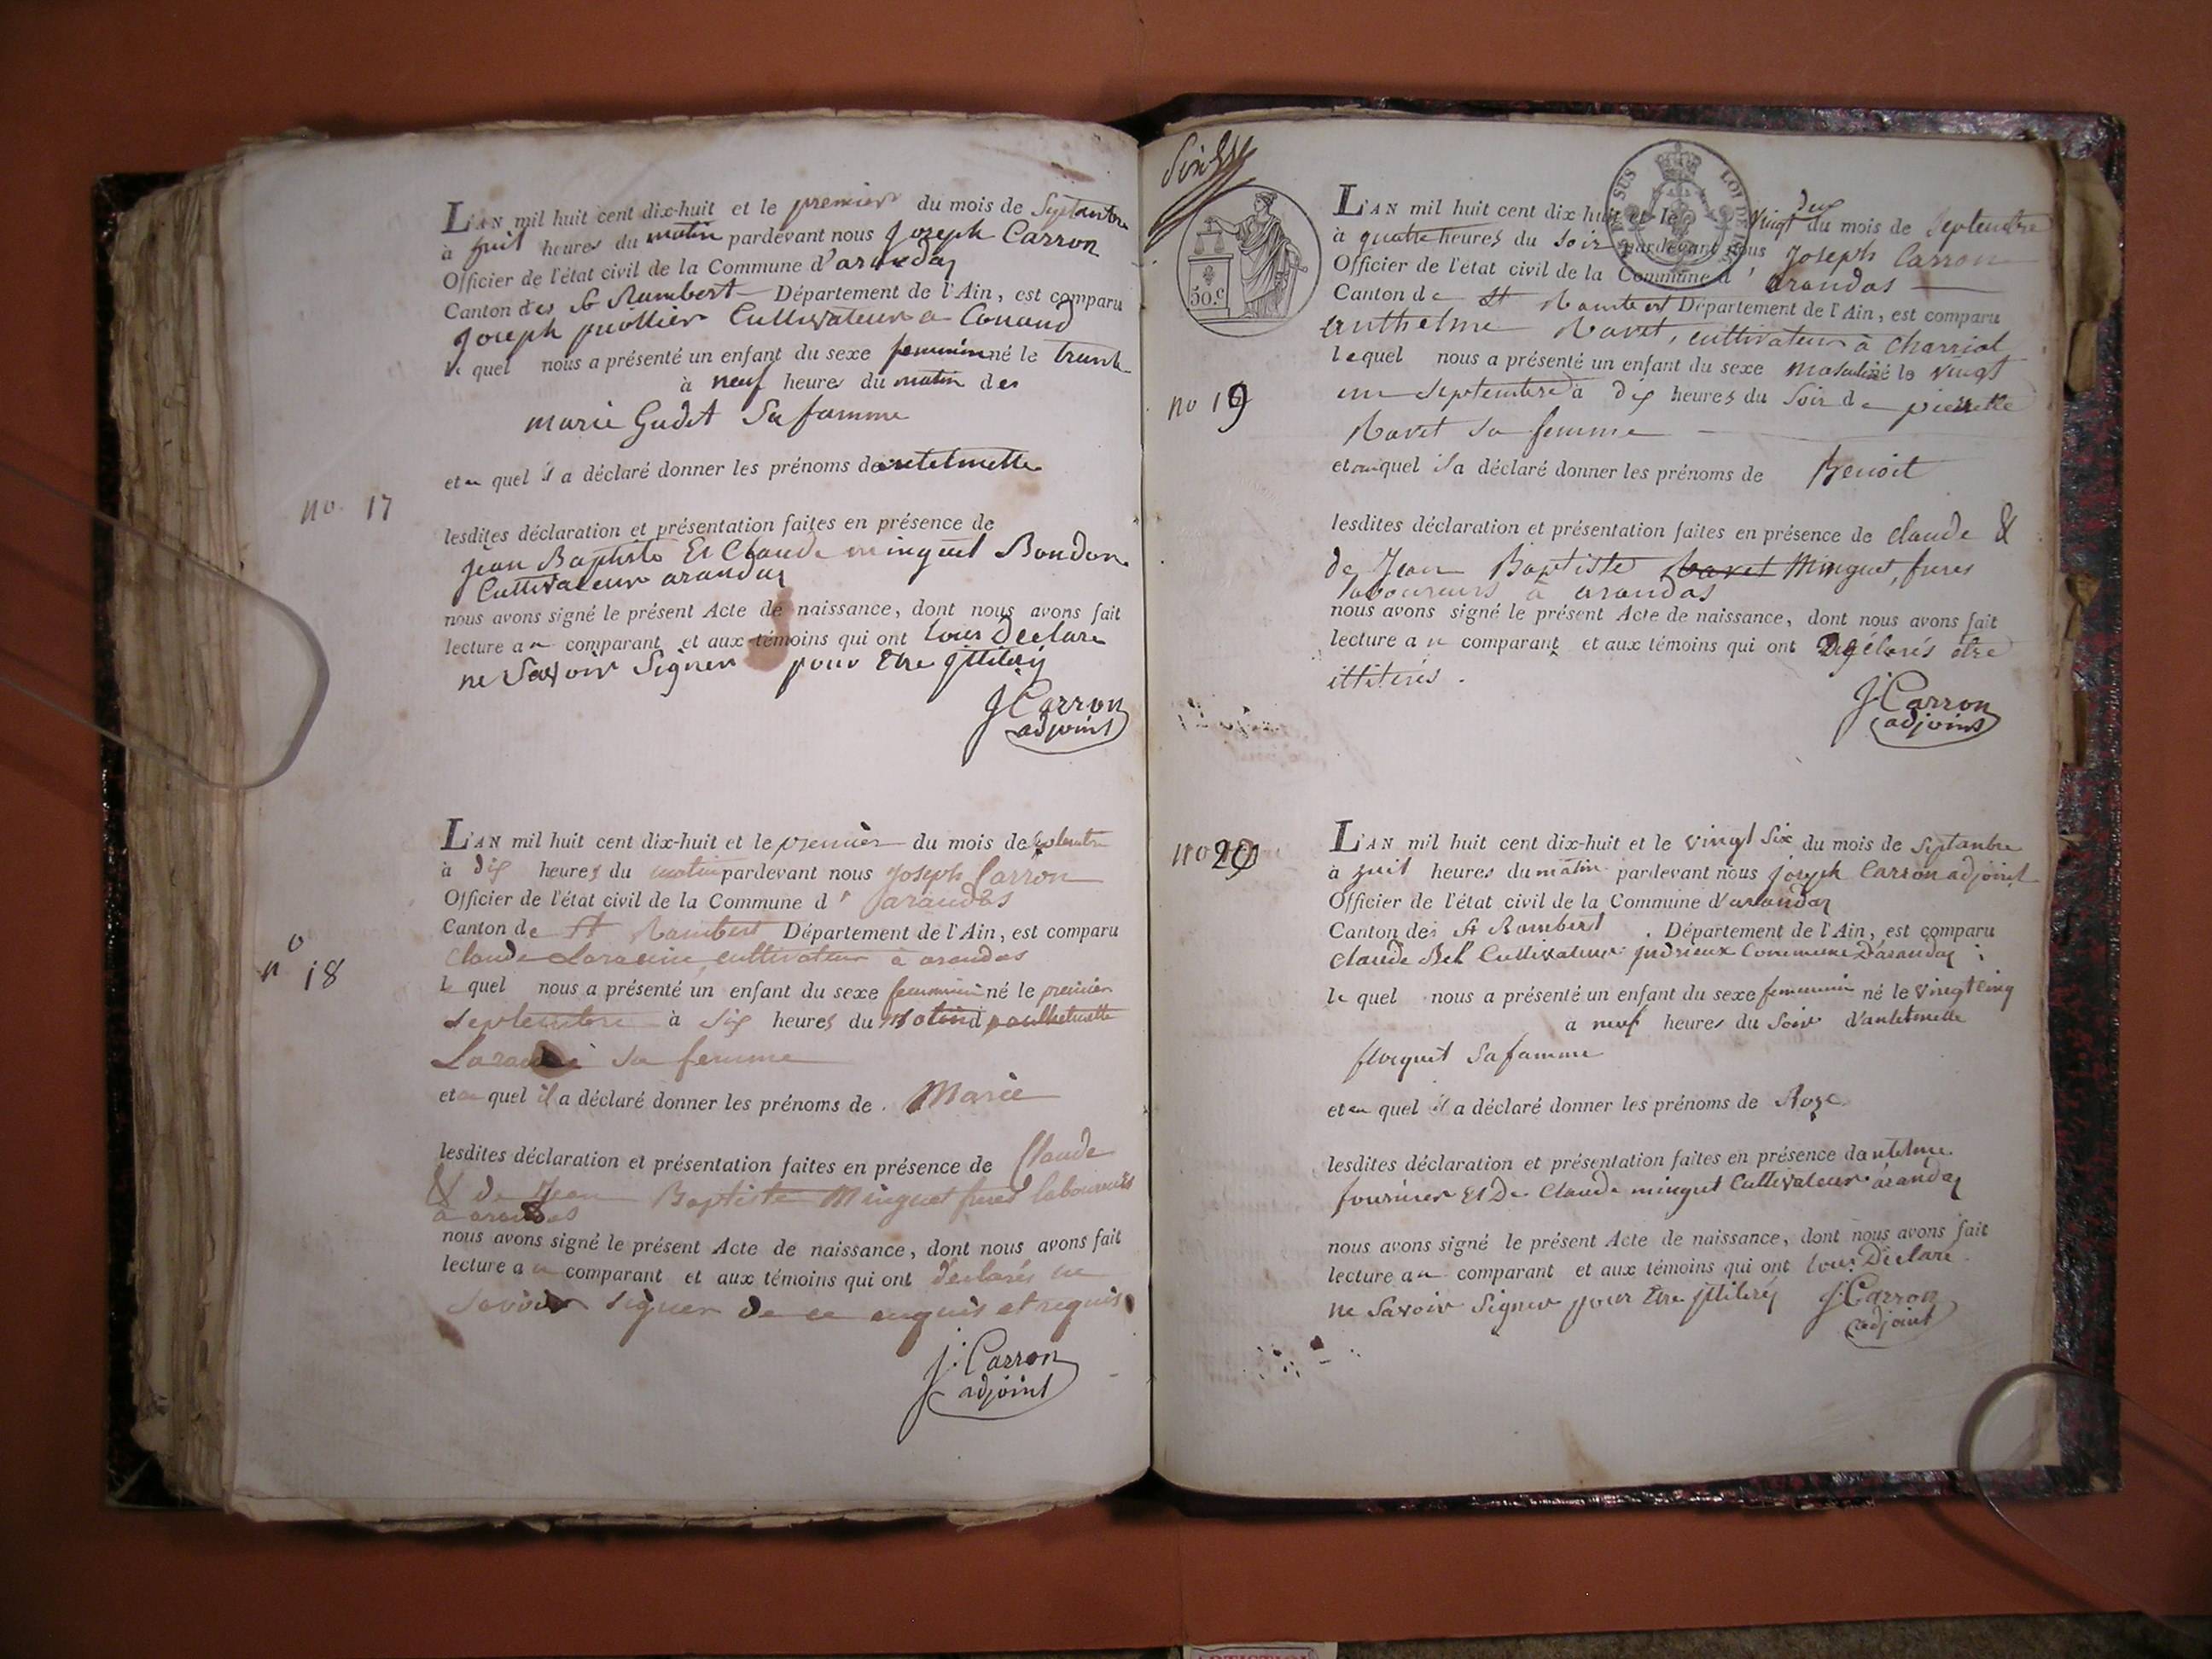 no. 17
L'AN mil huit cent dix-huit et le premier du mois de Septanbre
à huit heures du matin pardevant nous Joseph Carron
Officier de l'état civil de la Commune d'arandas
Canton des St Rambert Département de l'Ain, est comparu
Joseph Cultivateur a Conand
le quel nous a présenté un enfant du sexe feminin né le trante
à neuf heures du matin des
marie Gudet Sa famme
et au quel il a déclaré donner les prénoms de antelmette
lesdites déclaration et présentation faites en présence de
jean Baptiste Et Claude minguet Bondon
Cultivateur arandas
nous avons signé le présent Acte de naissance, dont nous avons fait
lecture au comparant et aux témoins qui ont tous Declare
ne Savoir Signer pour Etre jlliterés
J. Carron
adjoint
no 18
L'AN mil huit cent dix-huit et le premier du mois de septembre
à dix heures du matin pardevant nous Joseph Carron
Officier de l'état civil de la Commune d' arandas
Canton de St Rambert Département de l'Ain, est comparu
Claude cultivateur à arandas
le quel nous a présenté un enfant du sexe feminin né le premier
septembre à six heures du matin d
sa femme
et au quel il a déclaré donner les prénoms de Marie
lesdites déclaration et présentation faites en présence de Claude
& de Jean Baptiste Minguet freres laboureurs
à arandas
nous avons signé le présent Acte de naissance, dont nous avons fait
lecture au comparant et aux témoins qui ont déclarés ne
Savoir signer de ce enquis et requis
J. Carron
adjoint
50. c
SUS LOI DE
no 19
L'AN mil huit cent dix-huit et le vingt deux du mois de Septembre
à quatre heures du Soir pardevant nous Joseph Carron
Officier de l'état civil de la Commune d' arandas
Canton de St Rambert Département de l'Ain, est comparu
Anthelme Ravet, cultivateur à Charriat
lequel nous a présenté un enfant du sexe masculin né le vingt
un septembre à dix heures du Soir de pierrette
Ravet sa femme
et auquel il a déclaré donner les prénoms de Benoit
lesdites déclaration et présentation faites en présence de Claude &
de Jean Baptiste Ravet Minguet, freres
laboureurs à arandas
nous avons signé le présent Acte de naissance, dont nous avons fait
lecture au comparant et aux témoins qui ont Déclarés être
illitérés.
J. Carron
adjoint
no 20
L'AN mil huit cent dix-huit et le vingt Six du mois de Septanbre
à huit heures du matin pardevant nous joseph Carron adjoint
Officier de l'état civil de la Commune d'arandas
Canton des St Rambert. Département de l'Ain, est comparu
Claude Bel Cultivateur jndrieux Commune D'arandas
le quel nous a présenté un enfant du sexe feminin né le vingt cinq
à neuf heures du Soir d'antelmette
Sa famme
et au quel il a déclaré donner les prénoms de Roze
lesdites déclaration et présentation faites en présence d'antelme
fournier Et De Claude minguet Cultivateur arandas
nous avons signé le présent Acte de naissance, dont nous avons fait
lecture au comparant et aux témoins qui ont tous Declare
ne Savoir Signer pour Etre jlliterés J. Carron
adjoint